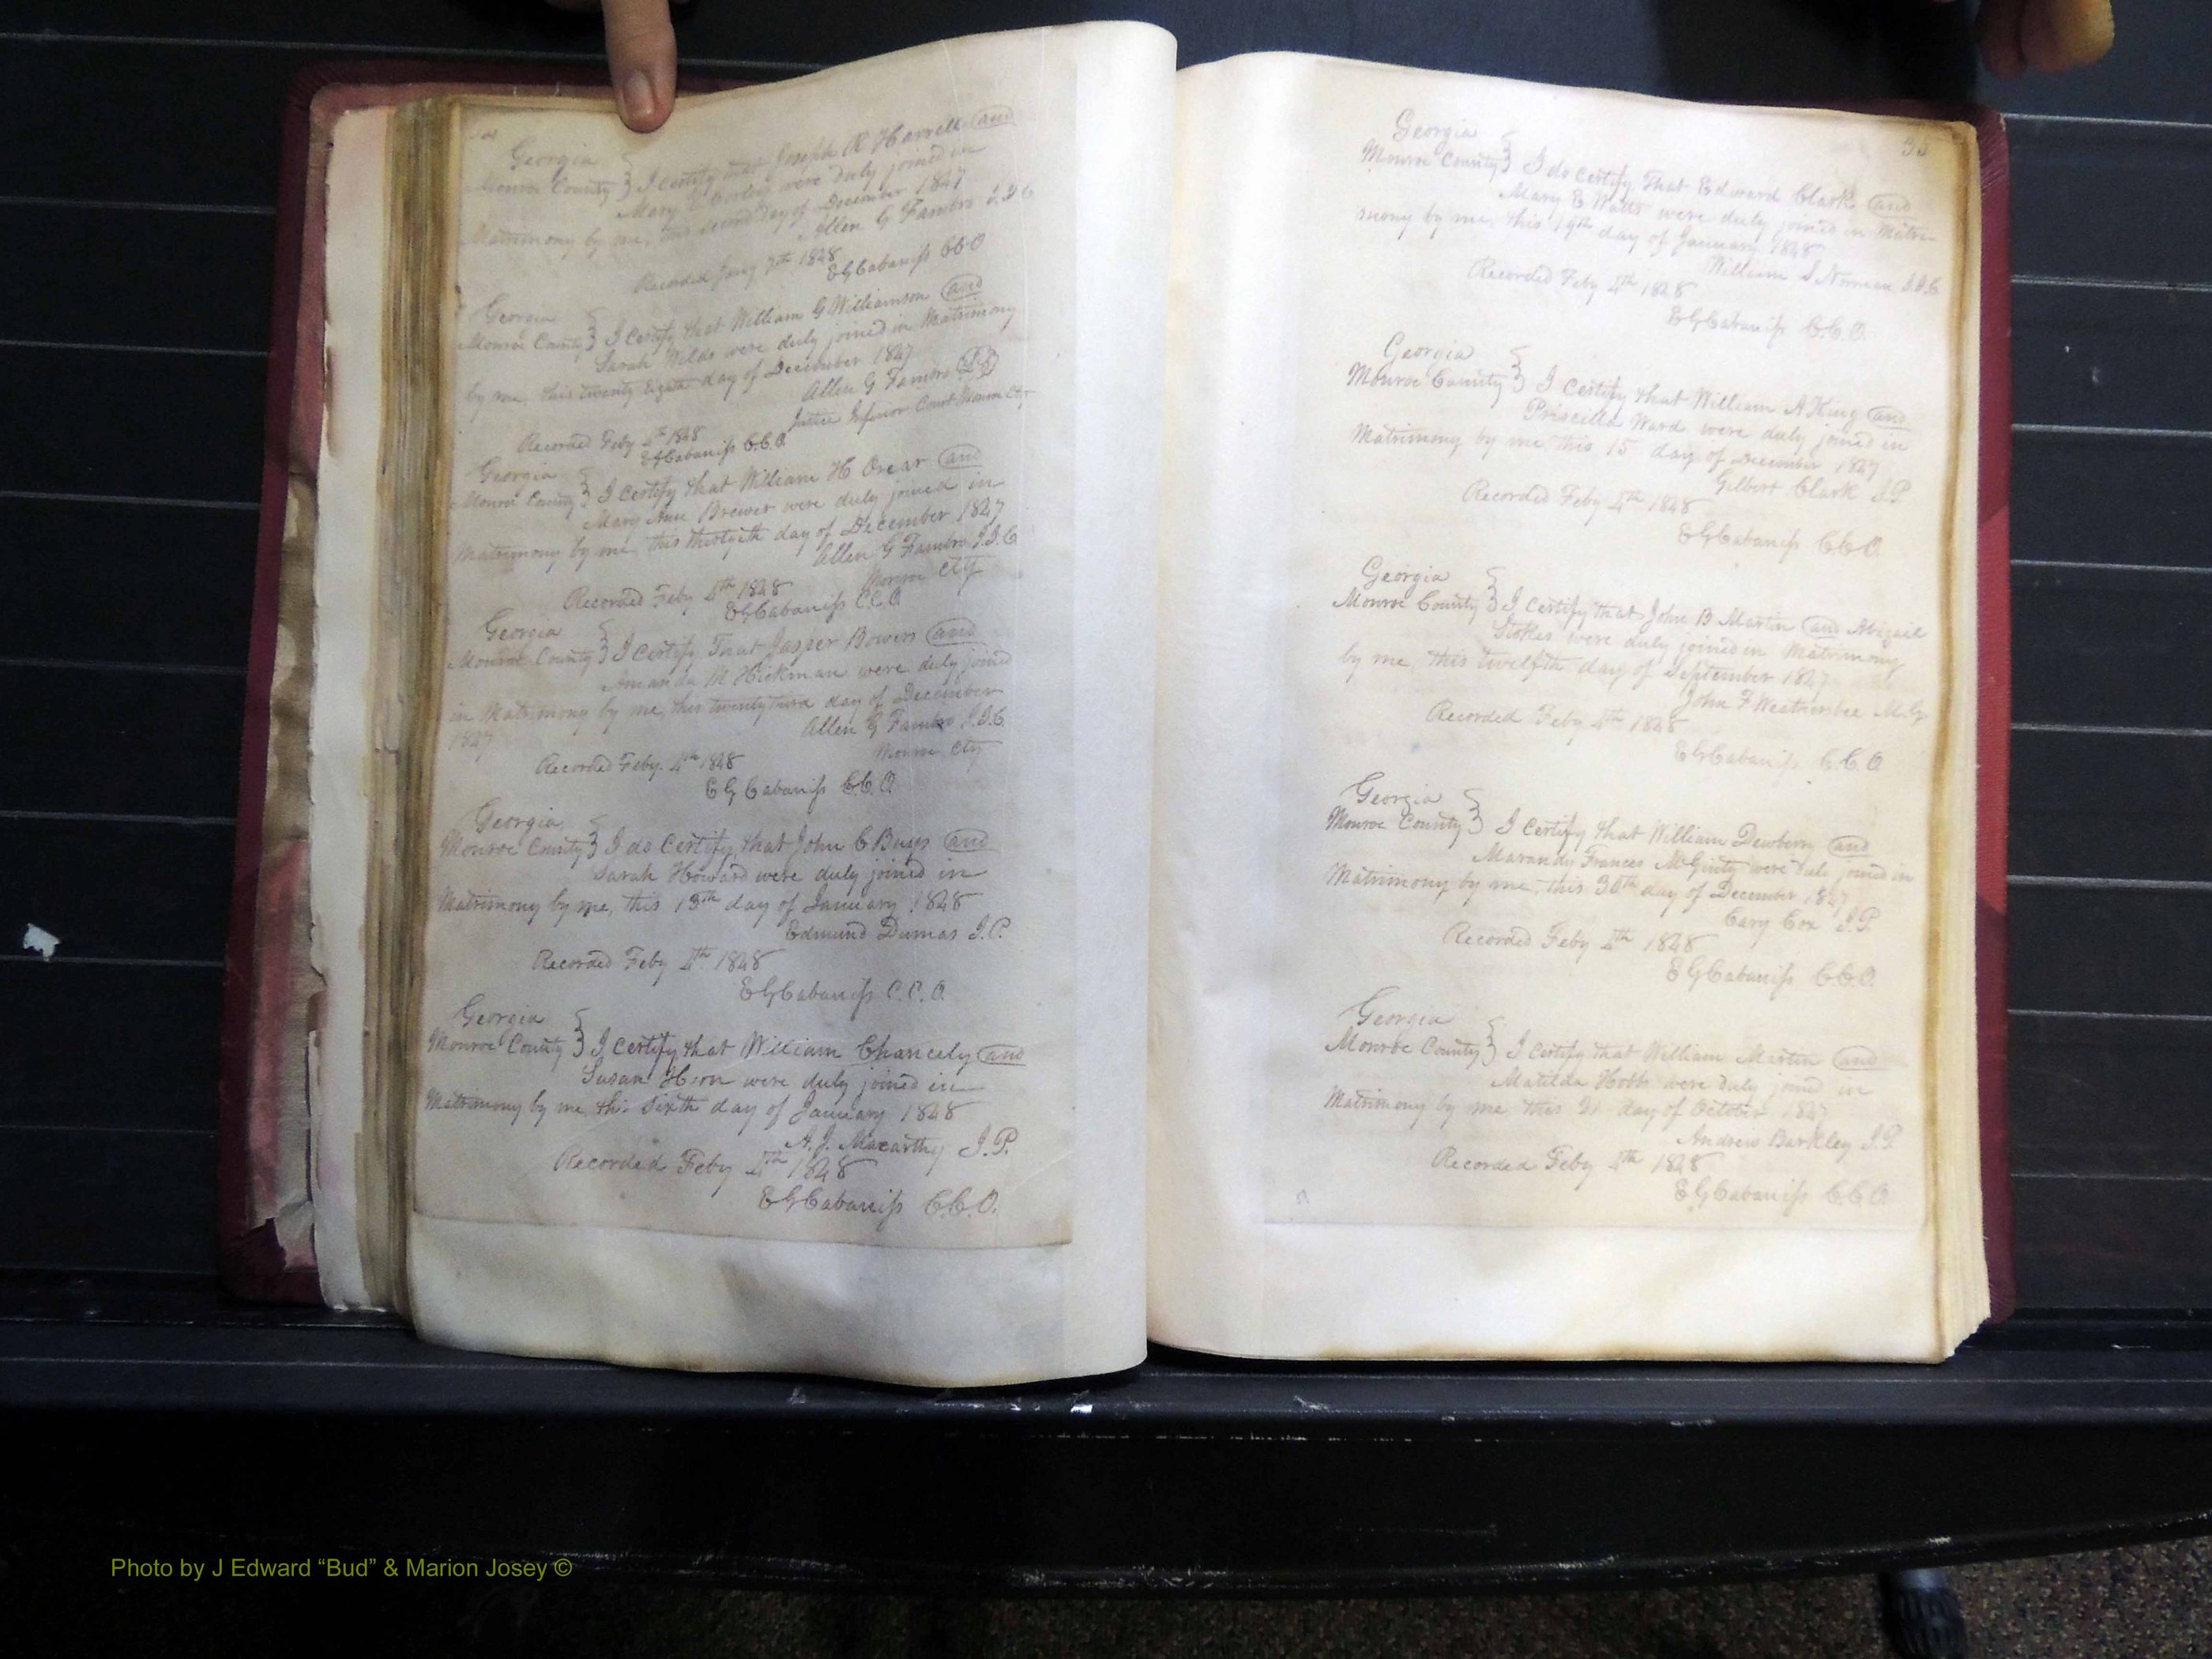 Georgia
Monroe County } I certify that Joseph R Harrell and
Mary E were duly joined in
Matrimony by me, this second day of December 1847
Allen G Fambro J.I.C
Recorded Jany 7th 1848
EGCabaniss CCO
Georgia
Monroe County } I certify that William G Williamson and
Sarah Wilds were duly joined in Matrimony
by me, this twenty eighth day of December 1847
Allen G Fambro
Justice Inferior Court Monroe Cty
Recorded Feby 4th 1848
EGCabaniss C.C.O.
Georgia
Monroe County } I certify that William H Orear and
Mary Ann Brewer were duly joined in
Matrimony by me this thirtyeth day of December 1847
Allen G Fambro J.I.C.
Monroe Cty
Recorded Feby 4th 1848
EGCabaniss C.C.O.
Georgia
Monroe County } I certify That Jasper Bowers and
Amanda M Hickman were duly joined
in Matrimony by me, this twenty third day of December
1847
Allen G Fambro J.I.C.
Monroe Cty
Recorded Feby. 4th 1848
E G Cabaniss C.C.O.
Georgia
Monroe County } I do Certify, that John C Buys and
Sarah Howard were duly joined in
Matrimony by me, this 13th day of January 1848
Edmund Dumas J.P.
Recorded Feby 4th 1848
EGCabaniss C.C.O.
Georgia
Monroe County } I, certify that William Chancely and
Susan were duly joined in
Matrimony by me, this Sixth day of January 1848
A. J. Macarthy J.P.
Recorded Feby 4th 1848
EGCabaniss C.C.O.
Georgia
Monroe County } I do certify, That Edward Clark and
Mary E Watts were duly joined in Matri-
mony by me, this 19th day of January 1848
William S Norman J.I.C.
Recorded Feby 4th 1848
EGCabaniss C.C.O.
Georgia
Monroe County } I certify that William A King and
Priscilla Ward were duly joined in
Matrimony by me this 15 day of December 1847
Gilbert Clark J.P.
Recorded Feby 4th 1848
EGCabaniss CCO.
Georgia
Monroe County } I certify that John B Martin and Abigail
Stokes were duly joined in Matrimony
by me, this twelfth day of September 1847
John F Weathersbee M.G.
Recorded Feby 4th 1848
EGCabaniss C.C.O
Georgia
Monroe County } I certify that William Dewberry and
Marandy Frances McGinty were duly joined in
Matrimony by me, this 30th day of December 1847
Cary Cox J.P.
Recorded Feby 4th 1848
EGCabaniss C.C.O.
Georgia
Monroe County } I certify that William Martin and
Matilda Hobbs were duly joined in
Matrimony by me this 31 day of October 1847
Andrew Barkley J.P.
Recorded Feby 4th 1848
EGCabaniss C.C.O
Photo by J Edward “Bud” & Marion Josey ©